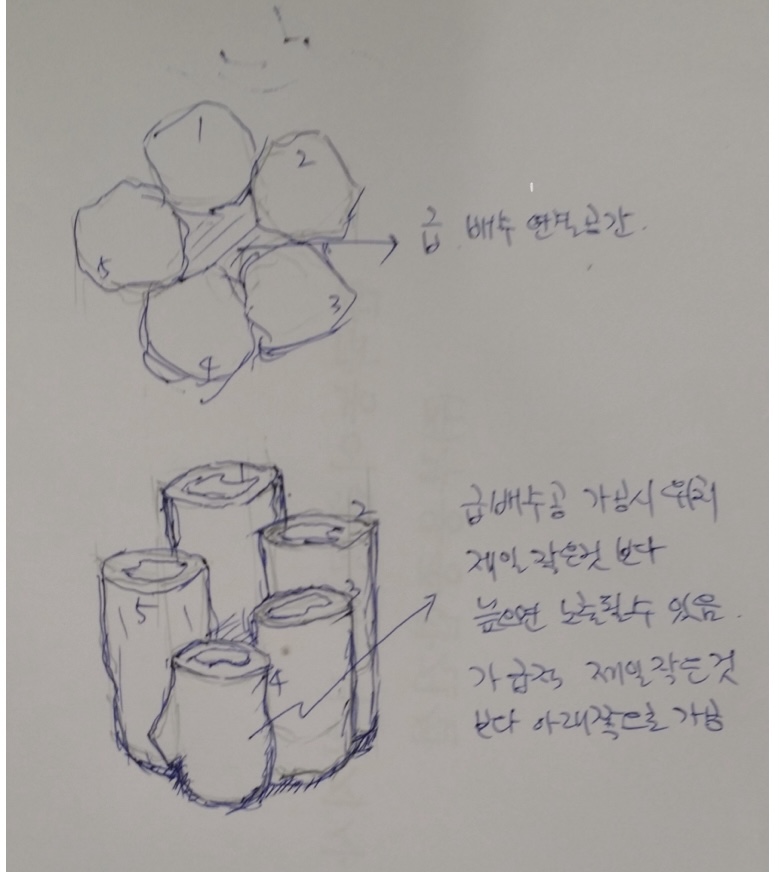 1
2
5
3
4
급 배수 연결공간.
1
2
3
5
4
급배수공 가공시 위치
제일 작은것 보다
높으면 노출될수 있음.
가급적 제일작은것
보다 아래쪽으로 가공